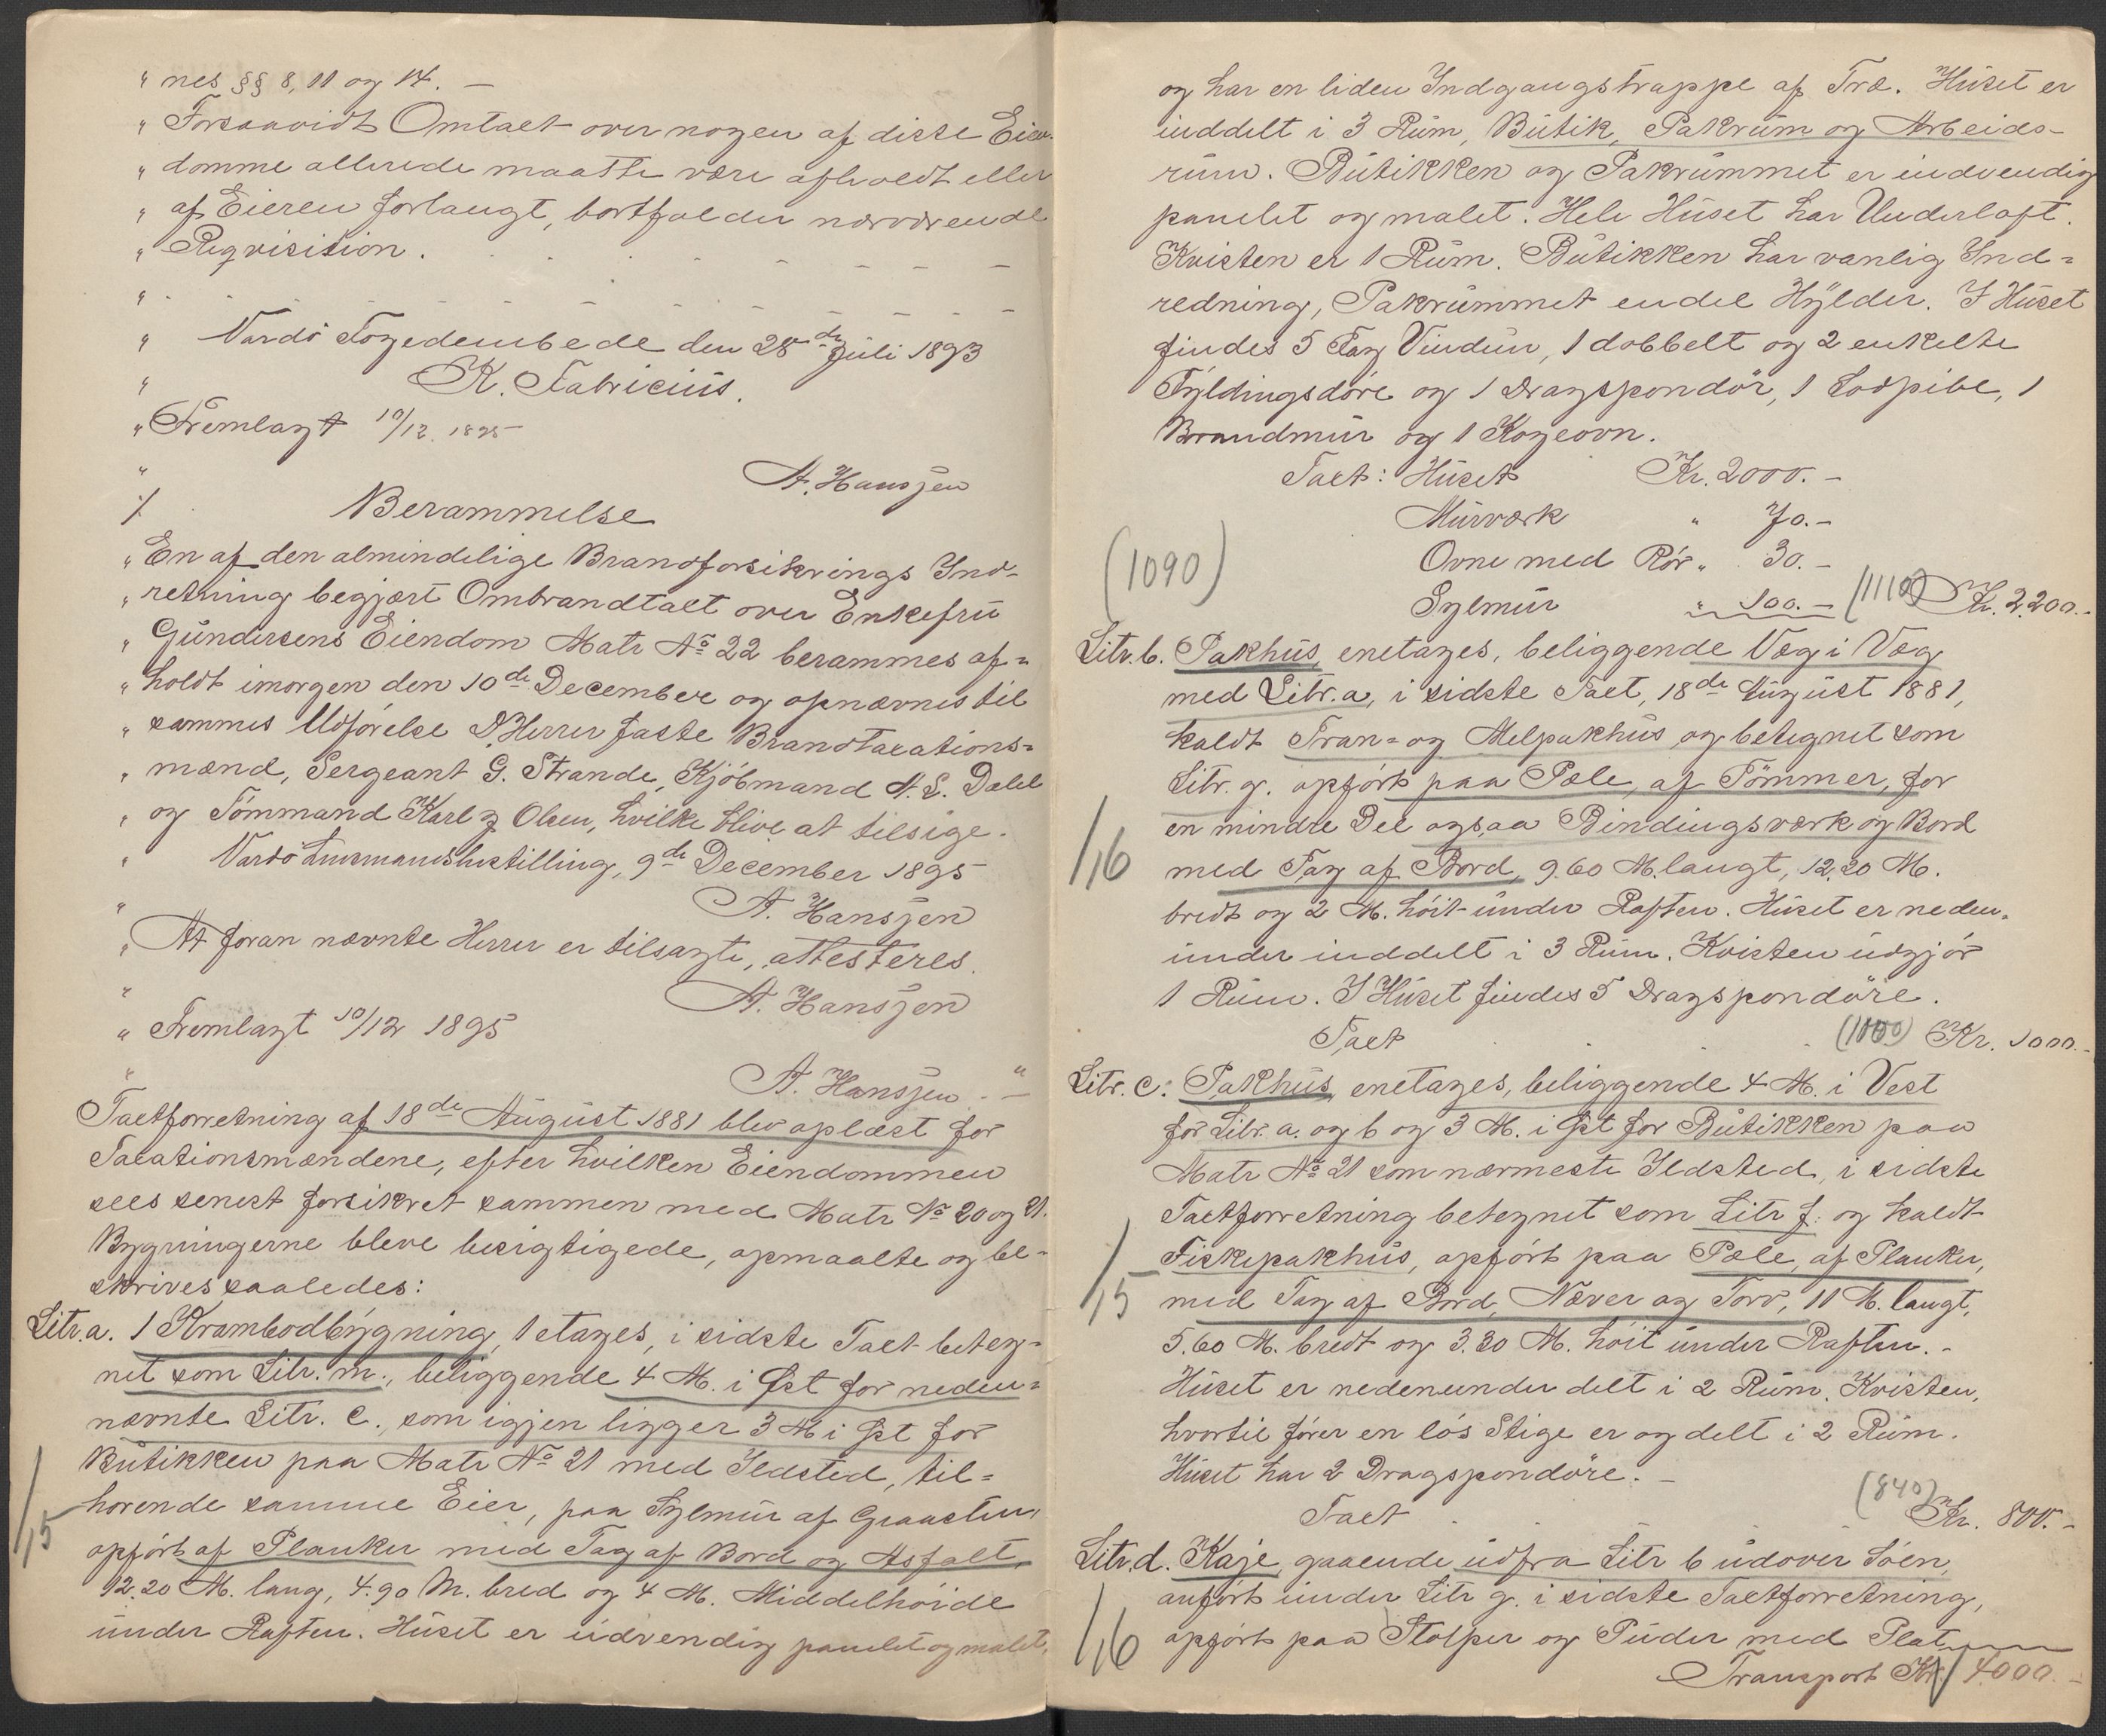 " nes §§ 8, 11 og 14. —
" Forsaavidt Omtaxt over nogen af disse Eien-
" domme allerede maatte være afholdt eller
" af Eieren forlangt, bortfalder nærværende
" Reqvisition. . . . - - - -
" . - - - - - - - - -
" Vardø Fogedembede den 28de Juli 1893
" K. Fabricius.
" Fremlagt 10/12 1895
" A. Hanssen
⁒ Berammelse
" En af den almindelige Brandforsikrings Ind-
" retning begjært Ombrandtaxt over Enkefru
" Gundersens Eiendom Matr No 22 berammes af=
" holdt imorgen den 10de December og opnævnes til
" sammes Udførelse D'Herrer faste Brandtaxations=
" mænd, Sergeant G. Strande, Kjøbmand N. L. Dahl
" og Tømmand Karl J Olsen, hvilke blive at tilsige.
" Vardø Lensmandsbestilling, 9de December 1895
" A. Hanssen
" At foran nævnte Herrer er tilsagte, attesteres.
" A. Hanssen
" Fremlagt 10/12 1895
" A. Hanssen. — "
Taxtforretning af 18de August 1881 blev oplæst for
Taxationsmændene, efter hvilken Eiendommen
sees senest forsikret sammen med Matr No 20 og 21.
Bygningerne bleve besigtigede, opmaalte og be-
skrives saaledes:
Litr. a. 1 Krambodbygning, 1 etages, i sidste Taxt beteg-
net som Litr. m., beliggende 4 M. i Øst for neden=
nævnte Litr. c., som igjen ligger 3 M i Øst for
Butikken paa Matr No 21 med Ildsted, til=
hørende samme Eier, paa Sylmur af Graasten,
1/15
opført af Planker med Tag af Bord og Asfalt,
12.20 M. lang, 4.90 M. bred og 4 M. Middelhøide
under Raften. Huset er udvendig panelet og malet,
og har en liden Indgangstrappe af Træ. Huset er
inddelt i 3 Rum, Butik, Pakrum og Arbeids-
rum. Butikken og Pakrummet er indvendig
panelet og malet. Hele Huset har Underloft.
Kvisten er 1 Rum. Butikken har vanlig Ind=
redning, Pakrummet endel Hylder. I Huset
findes 5 Fag Vinduer, 1 dobbelt og 2 enkelte
Fyldingsdøre og 1 Dragspondør, 1 Lodpibe, 1
Brandmur og 1 Kogeovn.
Taxt: Huset Kr. 2000. -
Murværk " 70. -
(1090) Ovne med Rør " 30. -
Sylmur " 100. - (1110) Kr. 2200. -
Litr. b. Pakhus, enetages, beliggende Væg i Væg
med Litr. a, i sidste Taxt, 18de August 1881,
kaldt Tran= og Melpakhus og betegnet som
Litr. g. opført paa Pæle, af Tømmer, for
1/16
en mindre Del ogsaa Bindingsværk og Bord
med Tag af Bord, 9.60 M. langt, 12.20 M.
bredt og 2 M. høit under Raften. Huset er neden=
under inddelt i 3 Rum. Kvisten udgjør
1 Rum. I Huset findes 5 Dragspondøre.
Taxt . . (1000) Kr. 1000. -
Litr. c: Pakhus enetages, beliggende 4 M. i Vest
for Litr. a. og b og 3 M. i Øst for Butikken paa
Matr No 21 som nærmeste Ildsted, i sidste
Taxtforretning betegnet som Litr f. og kaldt
1/15
Fiskepakhus, opført paa Pæle, af Planker,
med Tag af Bord, Næver og Torv, 11 M. langt,
5.60 M. bredt og 3.30 M. høit under Raften. -
Huset er nedenunder delt i 2 Rum. Kvisten,
hvortil fører en løs Stige er og delt i 2 Rum.
Huset har 2 Dragspondøre. -
Taxt . . . (840) Kr. 800. -
Litr. d. Kaje, gaaende udfra Litr b udover Søen,
anført under Litr g. i sidste Taxtforretning,
1/16
opført paa Stolper og Puder med Plat-
Transport Kr. 4000. -